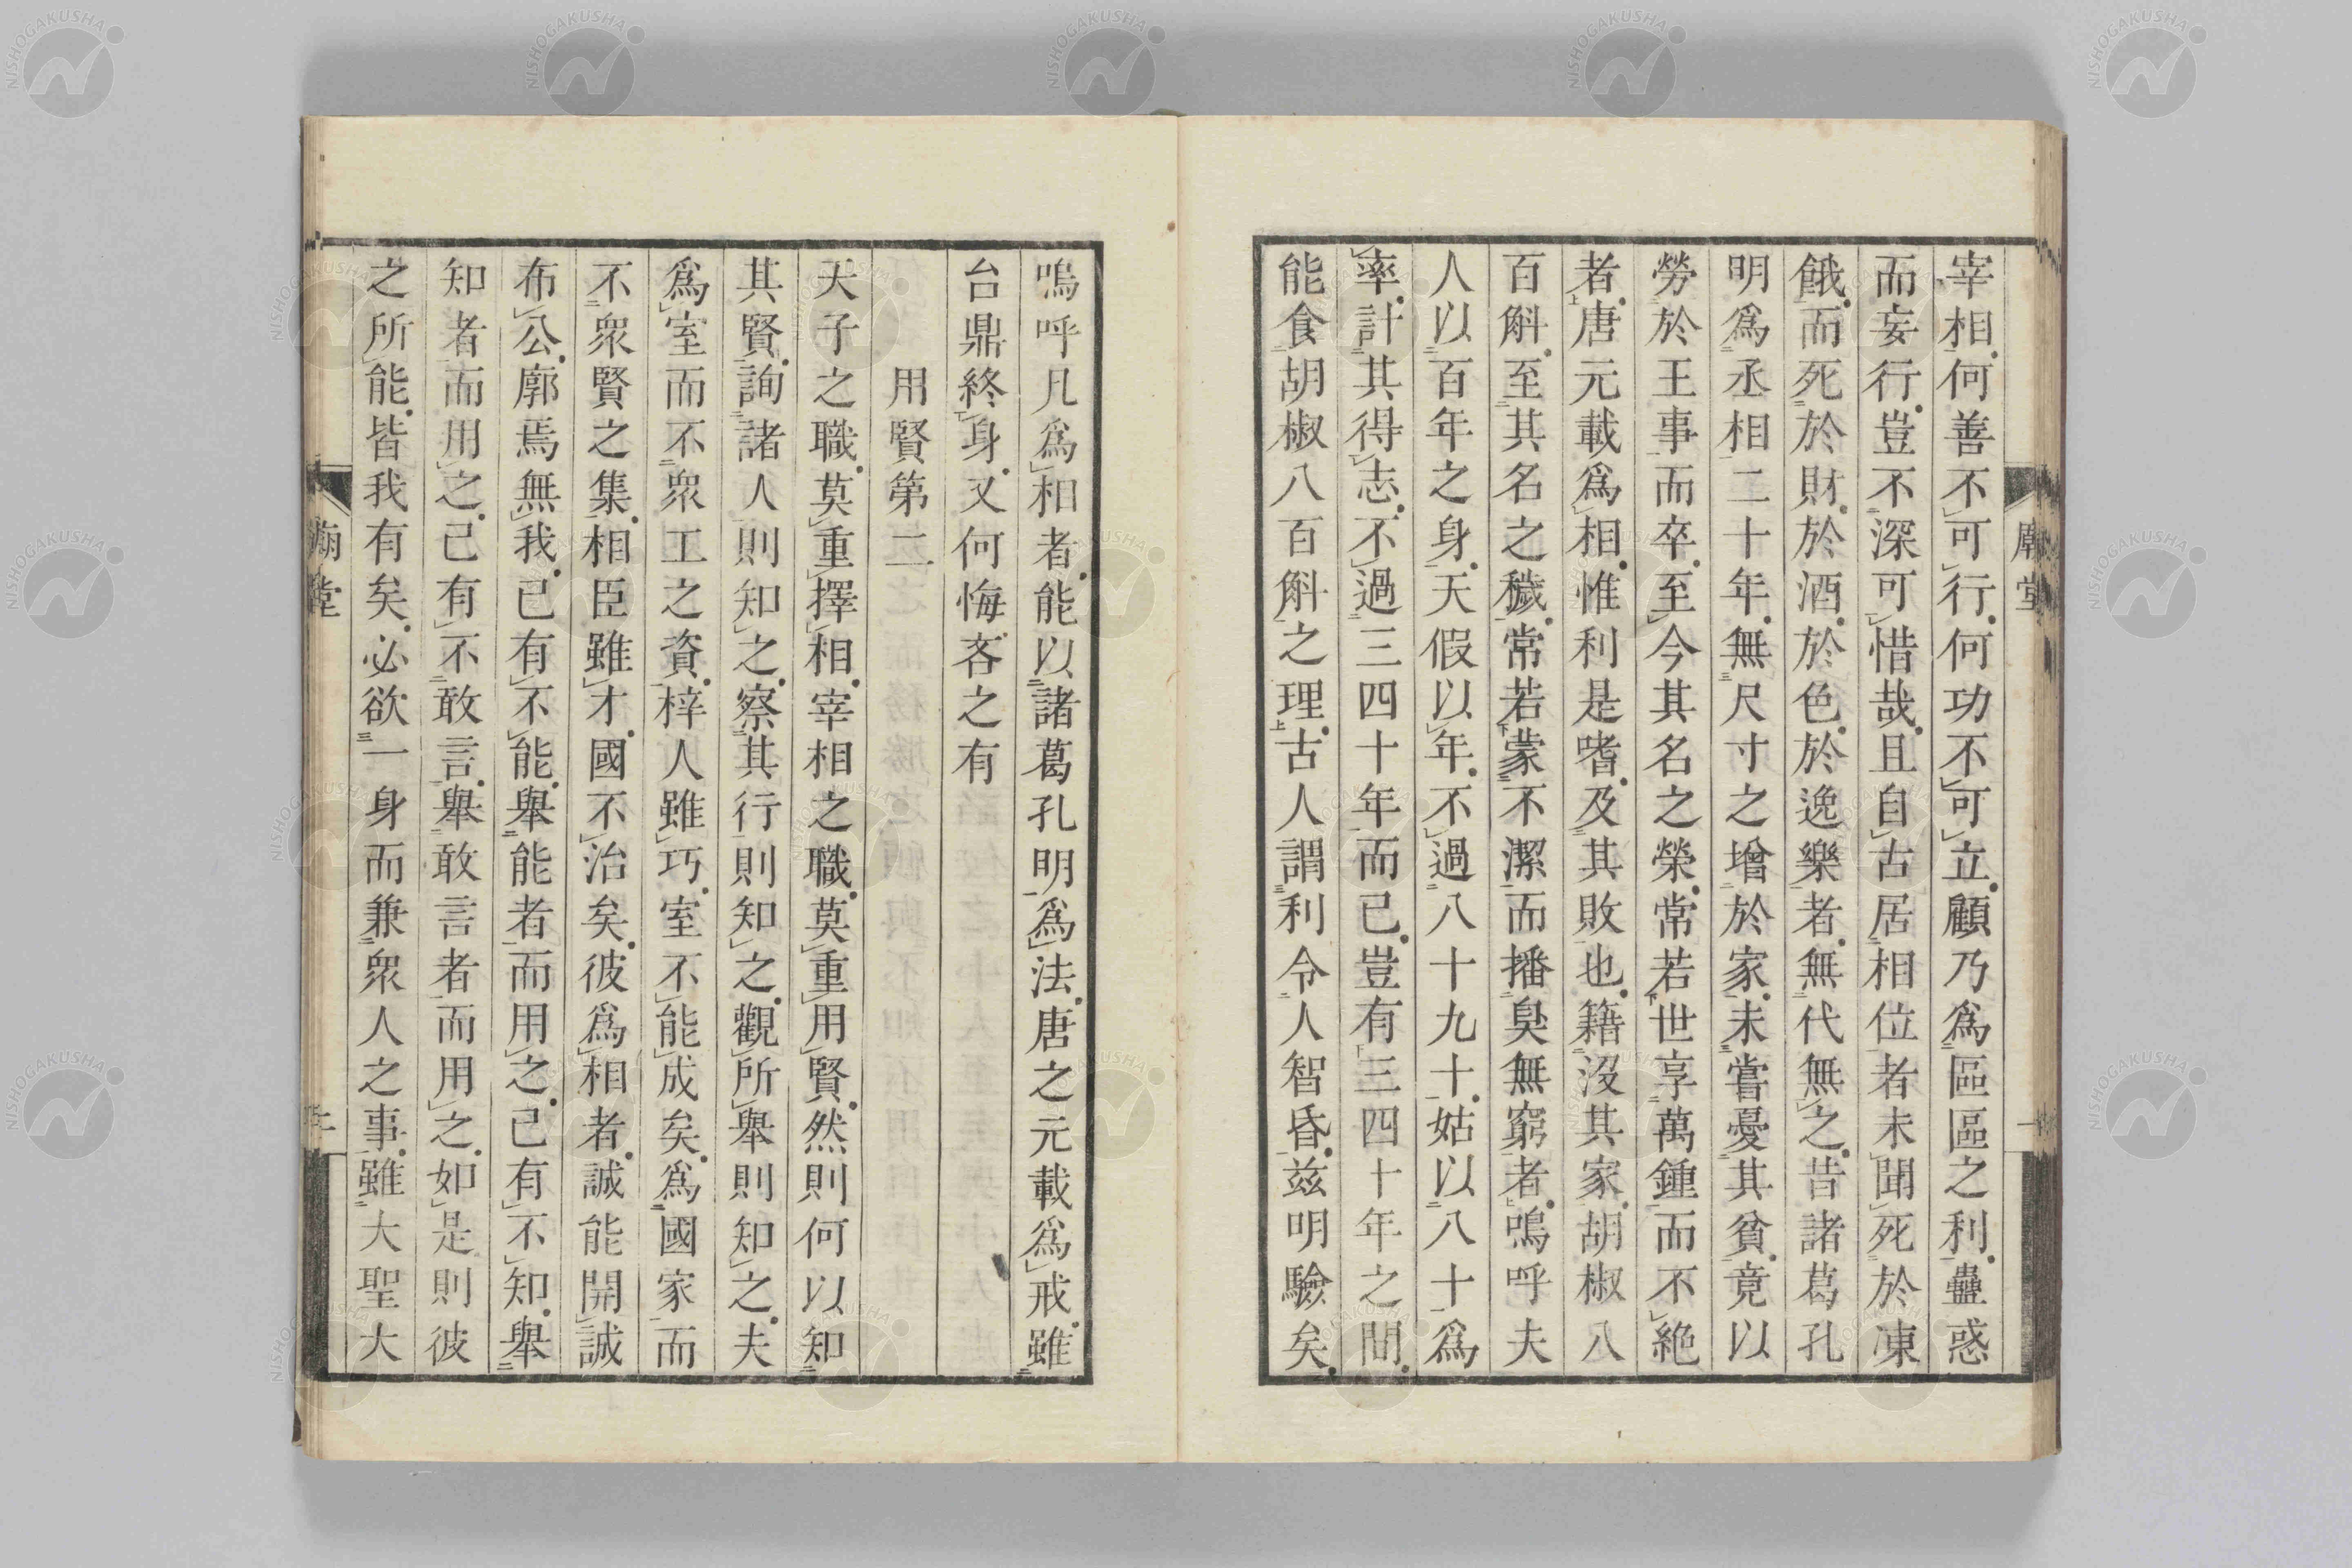 宰相何善不可行何功不可立顧乃爲區區之利蠱惑
而妄行豈不深可惜哉且自古居相位者未聞死於凍
餓而死於財於酒於色於逸樂者無代無之昔諸葛孔
明爲丞相二十年無尺寸之增於家未嘗憂其貧竟以
勞於王事而卒至今其名之榮常若世享萬鍾而不絶
者唐元載爲相惟利是嗜及其敗也籍沒其家胡椒八
百斛至其名之穢常若蒙不潔而播臭無窮者嗚呼夫
人以百年之身天假以年不過八十九十姑以八十爲
率計其得志不過三四十年而已豈有三四十年之間
能食胡椒八百斛之理古人謂利令人智昏茲明驗矣
廟堂
嗚呼凡爲相者能以諸葛孔明爲法唐之元載爲戒雖
台鼎終身又何悔吝之有
用賢第二
天子之職莫重擇相宰相之職莫重用賢然則何以知
其賢詢諸人則知之察其行則知之觀所舉則知之夫
爲室而不衆工之資梓人雖巧室不能成矣爲國家而
不衆賢之集相臣雖才國不治矣彼爲相者誠能開誠
布公廓焉無我已有不能舉能者而用之已有不知舉
知者而用之己有不敢言舉敢言者而用之如是則彼
之所能皆我有矣必欲一身而兼衆人之事雖大聖大
廟堂
NISHOGAKUSHA